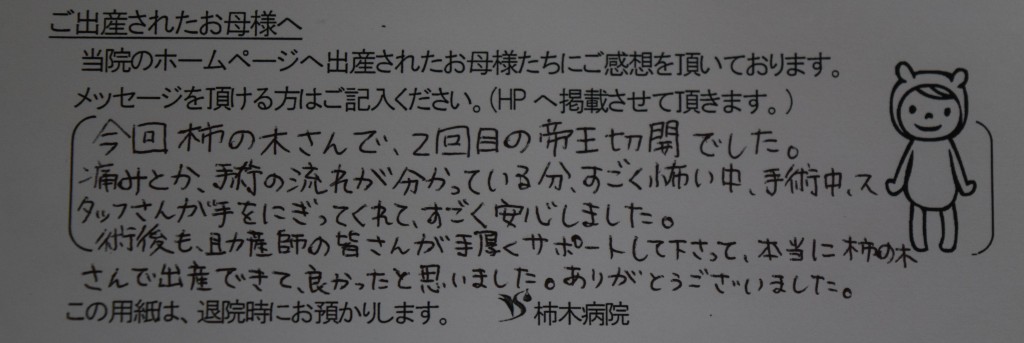 ご出産されたお母様へ
当院のホームページへ出産されたお母様たちにご感想を頂いております。
メッセージを頂ける方はご記入ください。(HPへ掲載させて頂きます。)
今回柿の木さんで、2回目の帝王切開でした。
痛みとか、手術の流れが分かっている分、すごく怖い中、手術中、ス
タッフさんが手をにぎってくれて、すごく安心しました。
術後も、助産師の皆さんが手厚くサポートして下さって、本当に柿の木
さんで出産できて、良かったと思いました。ありがとうございました。
この用紙は、退院時にお預かりします。 柿木病院